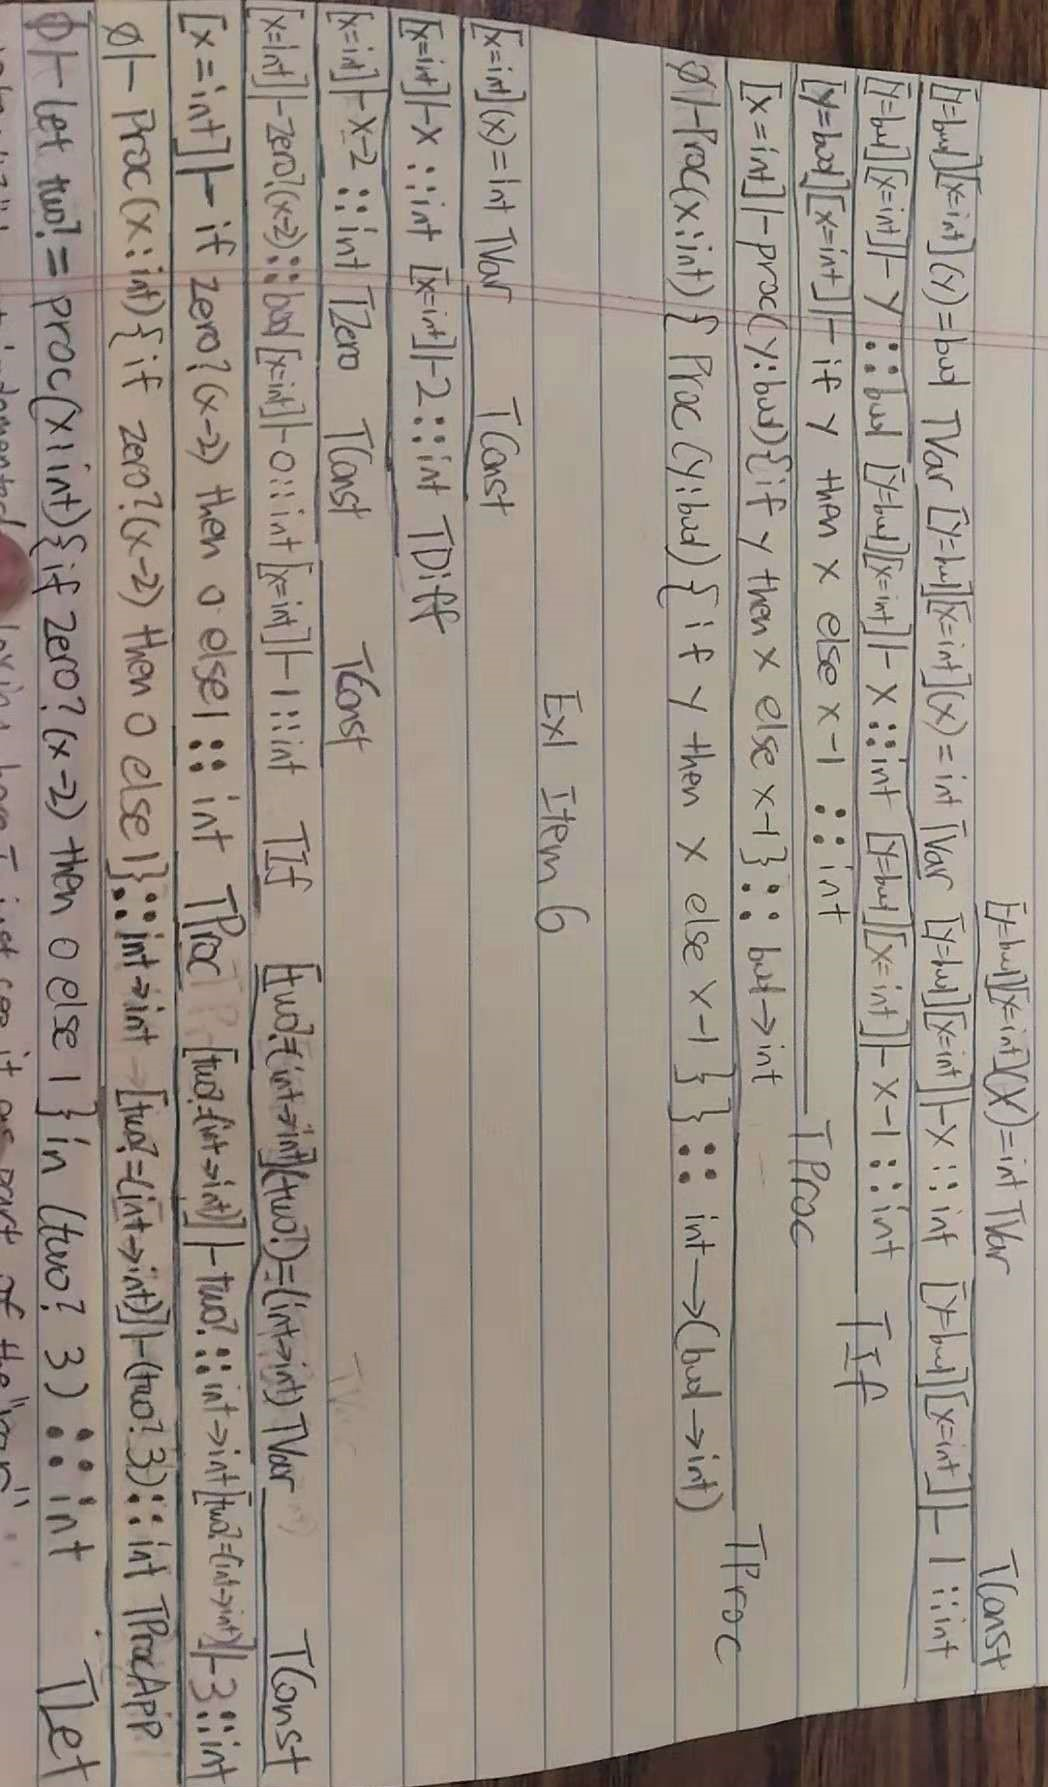 [y=bool][x=int](x)=int TVar TConst
[y=bool][x=int](y)=bool TVar [y=bool][x=int](x)=int TVar [y=bool][x=int]|-x::int [y=bool][x=int]|-1::int
[y=bool][x=int]|-y::bool [y=bool][x=int]|-x::int [y=bool][x=int]|-x-1::int TIf
[y=bool][x=int]|-if y then x else x-1::int TProc
[x=int]|-proc(y:bool){if y then x else x-1}::bool→int TProc
∅|-Proc(x:int){Proc(y:bool){if y then x else x-1}}::int→(bool→int)
Ex1 Item 6
[x=int](x)=int TVar TConst
[x=int]|-x::int [x=int]|-2::int TDiff
[x=int]|-x-2::int TZero TConst TConst
[x=int]|-zero?(x-2)::bool [x=int]|-0::int [x=int]|-1::int TIf [two?=(int→int](two?)=(int→int) TVar TConst
[x=int]|-if zero?(x-2) then 0 else 1::int TProc [two?=(int→int)]|-two?::int→int [two?=(int→int)]|-3::int
∅|-Proc(x:int){if zero?(x-2) then 0 else 1}::int→int [two?=(int→int)]|-(two? 3)::int TProcApp
∅|-let two?=proc(x:int){if zero?(x-2) then 0 else 1}in (two? 3)::int TLet
have I just see it as part of the